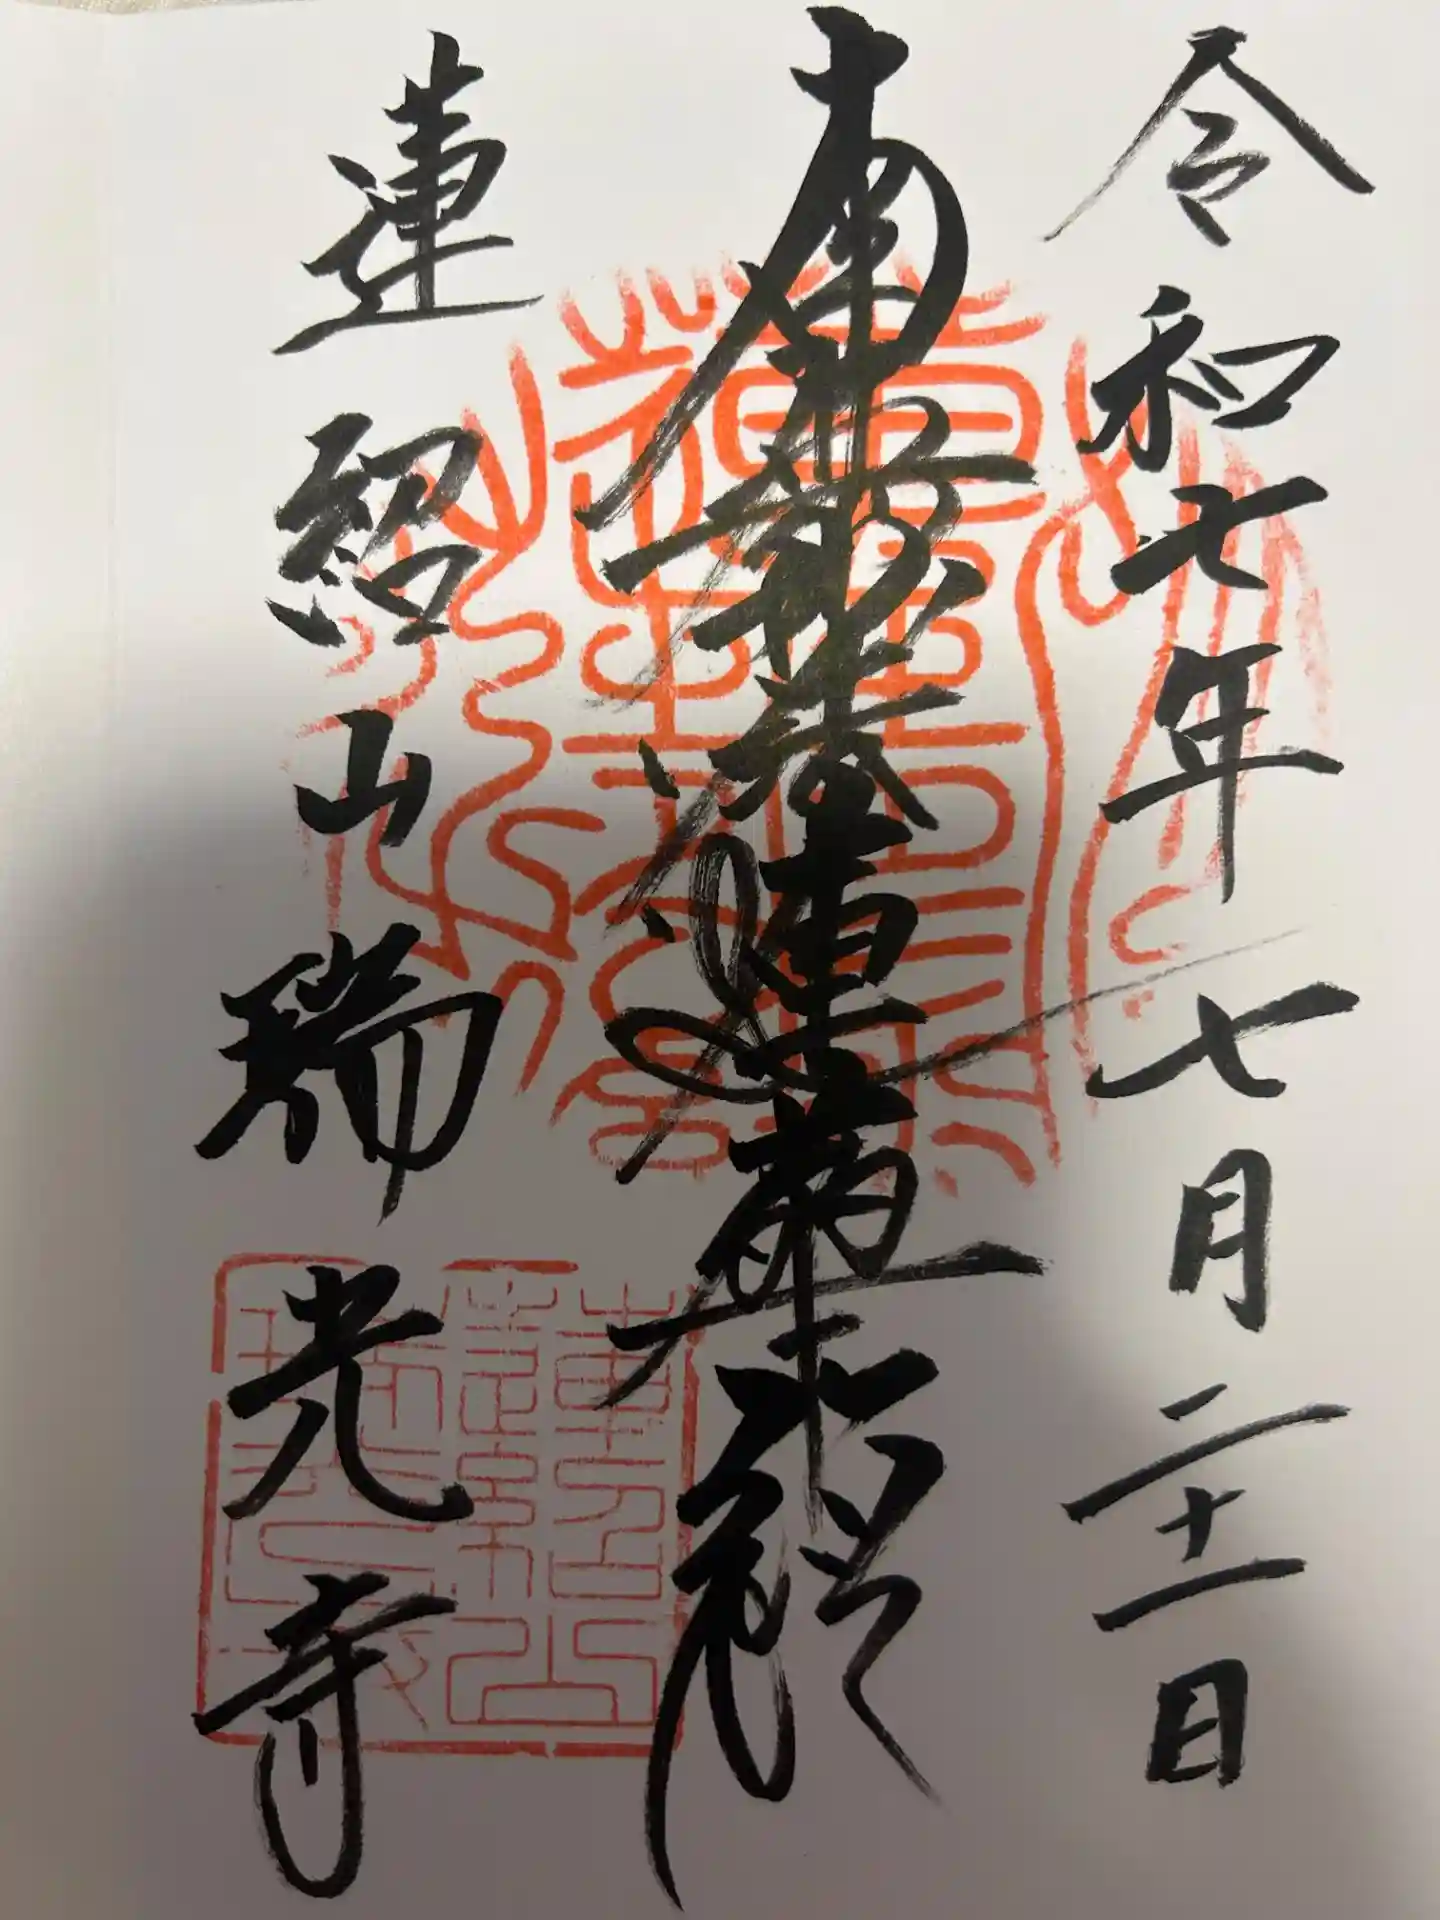 令和七年七月二十一日
南無妙法蓮華経
蓮紹山瑞光寺